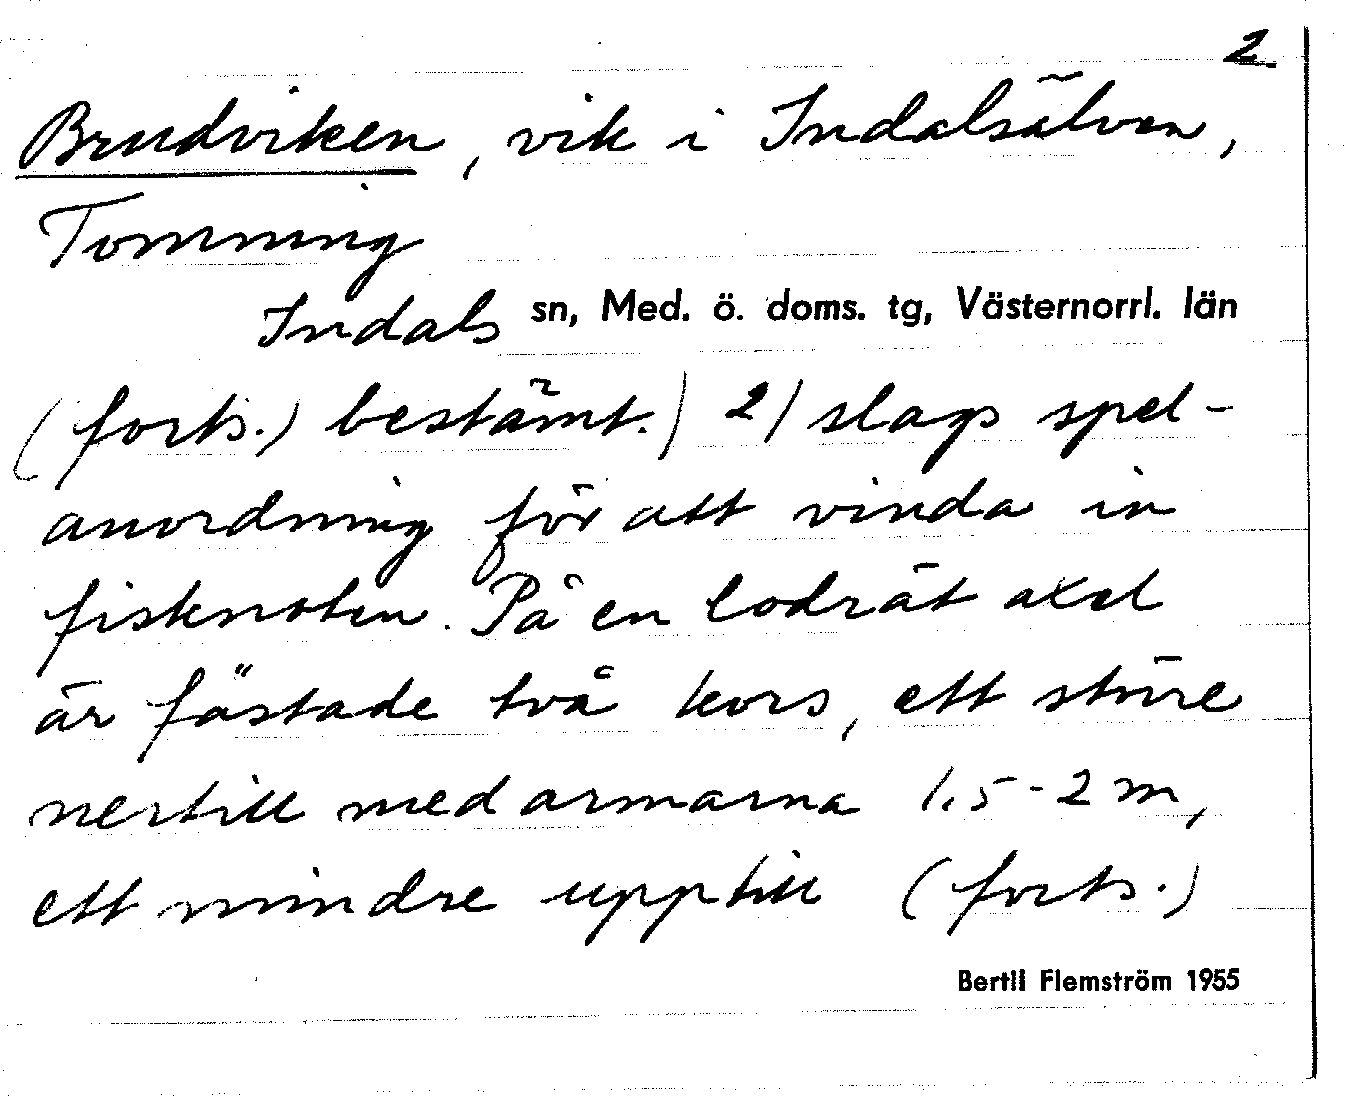 2.
Brudviken, vik i Indalsälven,
Tomming
Indals sn, Med. ö. doms. tg, Västernorrl. län
(forts.) bestämt.) 2) slags spel-
anordning för att vinda in
fisknoten. På en lodrät axel
är fästade två kors, ett större
nertill med armarna 1,5-2 m,
ett mindre upptill (forts.)
Bertil Flemström 1955